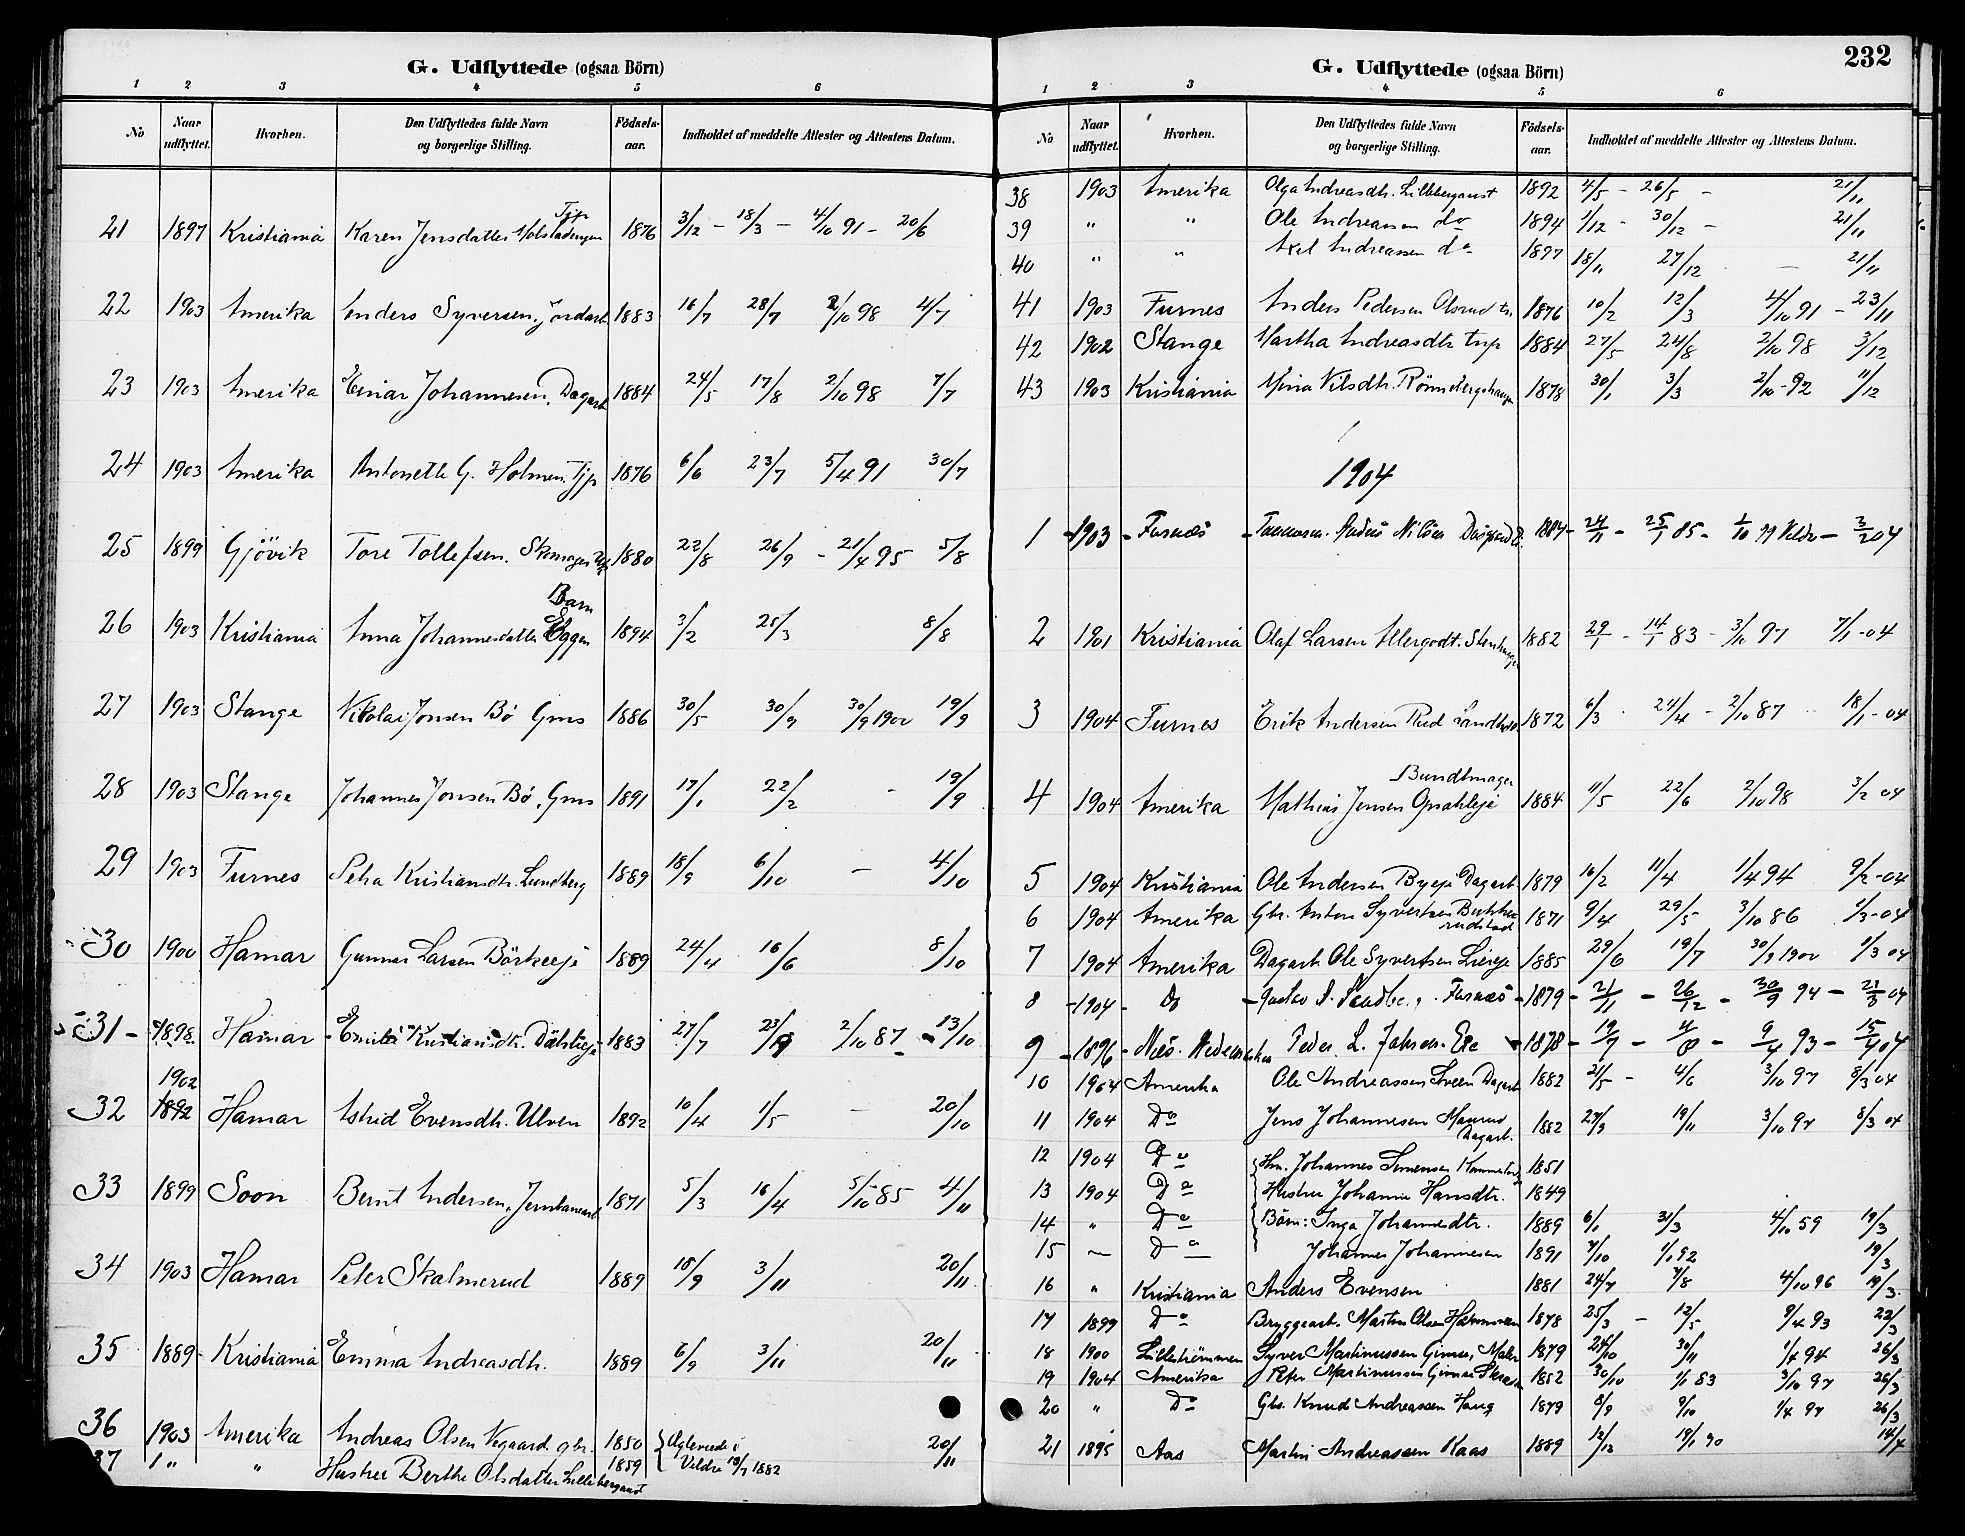 G. Udflyttede (ogsaa Börn)
1 2 3 4 5 6
No Naar udflyttet. Hvorhen. Den Udflyttedes fulde Navn og borgerlige Stilling. Födsels-aar. Indholdet af meddelte Attester og Attestens Datum.
21 1897 Kristiania Karen Jensdatter Tjp 1876 3/12 - 18/3 - 4/10 91 - 20/6
22 1903 Amerika Anders Syversen, Jordarb. 1883 16/7 28/7 2/10 98 4/7
23 1903 Amerika Einar Johannesen, Dagarb 1884 24/5 17/8 2/10 98 7/7
24 1903 Amerika Antonette G. Holmen. Tjp 1876 6/6 23/7 5/4 91 30/7
25 1899 Gjövik Tore Tollefsen. 1880 22/8 26/9 - 21/4 95 5/8
26 1903 Kristiania Anna Johannesdatter Eggen Barn 1894 3/2 25/3 8/8
27 1903 Stange Nikolai Jonsen Bø Gms 1886 30/5 30/9 30/9 1900 19/9
28 1903 Stange Johannes Jonsen Bø, Gms 1891 17/1 22/2 - 19/9
29 1903 Furnes Petra Kristiansdtr. Lundberg 1889 18/9 6/10 - 4/10
30 1900 Hamar Gunnar Larsen Börkeeje 1889 24/4 16/6 8/10
31 - 1898 Hamar - Emilie Kristiansdtr. 1883 27/7 23/9 2/10 87 - 13/10
32 1902 1892 Hamar Astrid Evensdtr. Ulven 1892 10/4 1/5 - 20/10
33 1899 Soon Bernt Andersen, Jernbanearb 1871 5/3 16/4 5/10 85 4/11
34 1903 Hamar Peter Skalmerud 1889 15/9 3/11 20/11
35 1889 Kristiania Emma Andreasdtr. 1889 6/9 3/11 20/11
36 1903 Amerika Andreas Olsen Vegaard gbr. 1850 { Ægteviede i 20/11
37 1" " Hustru Berthe Olsdatter Lillebergaust 1859 Veldre 18/7 1882
232
G. Udflyttede (ogsaa Börn)
1 2 3 4 5 6
No Naar udflyttet. Hvorhen. Den Udflyttedes fulde Navn og borgerlige Stilling. Födsels-aar. Indholdet af meddelte Attester og Attestens Datum.
38 1903 Amerika Olga Andreasdtr. Lillebergaust 1892 4/5 - 26/5 - 21/11
39 " " Ole Andreassen do 1894 1/12 - 30/12 - 21/11
40 " " Axel Andreassen do 1897 18/11 27/12 - 21/11
41 1903 Furnes Anders Pedersen Olsrud 1876 10/2 12/3 4/10 91 - 23/11
42 1902 Stange Martha Andreasdtr tnp 1884 27/5 24/8 2/10 98 3/12
43 1903 Kristiania Mina Nilsdtr. Rönnebergshaugen 1878 30/1 3/3 2/10 - 92 11/12
1904
1 - 1903 - Furnæs - Anders Nilsen 1884 - 24/1 - 25/1 85 - 1/10 99 Veldre - 2/2 04
2 1901 Kristiania Olaf Larsen Allergodt. 1882 29/1 - 14/1 83 - 3/10 97 7/1 - 04
3 1904 Furnes Erik Andersen Rud 1872 6/3 - 24/4 - 2/10 87 - 18/1 - 04
4 1904 Amerika Mathias Jensen Bundtmager 1884 11/5 22/6 2/10 98 3/2 04
5 1904 Kristiania Ole Andersen Byeje Dagarb. 1879 16/2 11/4 1/4 94 9/2 - 04
6 1904 Amerika Gbr. Anton Syvertsen 1871 9/4 29/5 3/10 86 1/3 - 04
7 1904 Amerika Dagarb Ole Syvertsen Lieeje 1885 29/6 19/7 30/9 1900 1/3 04
8 - 1904 - Do - Gustav Furnæs - 1879 - 21/11 - 26/12 - 30/9 94 - 21/3 04
9 - 1896 - Næs. Hedemarken Peder L. Johnsen 1878 - 19/7 - 4/8 - 9/4 93 - 15/4 04
10 1904 Amerika Ole Andreassen Sveen Dagarb 1882 21/5 - 4/6 3/10 97 8/3 04
11 1904 Do Jens Johannesen Maurud Dagarb. 1882 27/9 19/11 3/10 97 8/3 04
12 1904 Do { Hm. Johannes Simensen 1851
13 1904 Do Hustru Johanne Hansdtr. 1849
14 " Do { Børn: Inga Johannesdtr. 1889 6/1 31/3 4/10 59 19/3
15 - Do Johannes Johannesen 1891 7/10 1/1 92 19/3
16 " Kristiania Anders Evensen 1881 24/7 7/8 4/10 96 19/3
17 1899 Do Bryggearb. Martin Olsen 1878 25/3 - 12/5 9/4 93 22/3
18 1900 Lilleströmmen Syver Martinussen Gimse, Maler 1879 24/10 30/11 1/4 94 26/3
19 1904 Amerika Peter Martinussen Gimse 1882 30/10 1/1 83 3/10 97 26/3
20 " Do Gbs. Knud Andreassen Haug 1879 8/9 9/10 1/4 97 26/3
21 1895 Aas Martin Andreassen Kaas 1889 12/12 19/1 90 14/4